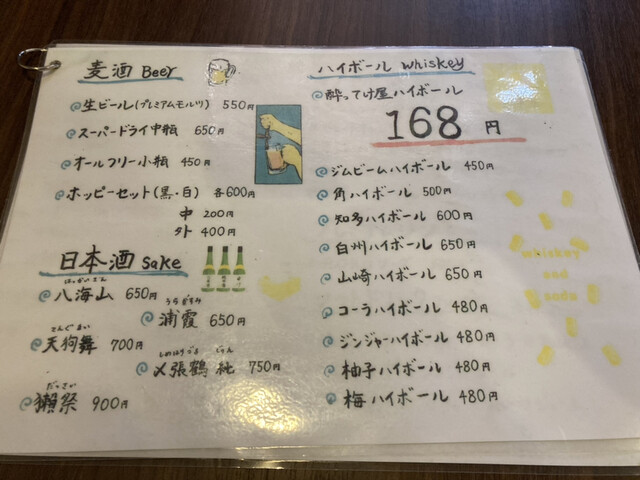 麦酒 Beer
生ビール(プレミアムモルツ) 550円
スーパードライ中瓶 650円
オールフリー小瓶 450円
ホッピーセット(黒・白) 各600円
中 200円
外 400円
日本酒 sake
はっかいさん
八海山 650円
うらがすみ
浦霞 650円
てんぐまい
天狗舞 700円
しめはりつる じゅん
〆張鶴 純 750円
だっさい
獺祭 900円
ハイボール whiskey
酔ってけ屋ハイボール
168円
ジムビームハイボール 450円
角ハイボール 500円
知多ハイボール 600円
白州ハイボール 650円
山崎ハイボール 650円
コーラハイボール 480円
ジンジャーハイボール 480円
柚子ハイボール 480円
梅ハイボール 480円
whiskey
and
soda